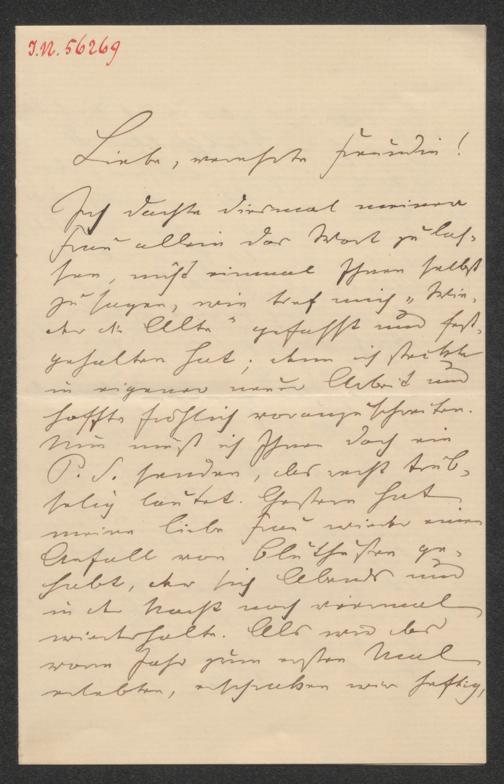 I.N. 56269
Liebe, verehrte Freundin!
Ich dachte diesmal meiner
Frau allein das Wort zu las-
sen, nicht einmal Ihnen selbst
zu sagen, wie tief mich „Wie-
der die Alte“ gefasst und fest-
gehalten hat; denn ich steckte
in eigener neuer Arbeit und
hoffte fröhlich voranzuschreiten.
Nun muß ich Ihnen doch ein
P. S. senden, das recht trüb-
selig lautet. Gestern hat
meine liebe Frau wieder einen
Anfall von Bluthusten ge-
habt, der sich Abends und
in der Nacht noch viermal
wiederholte. Als wir das
vorm Jahr zum ersten Mal
erlebten, erschraken wir heftig,